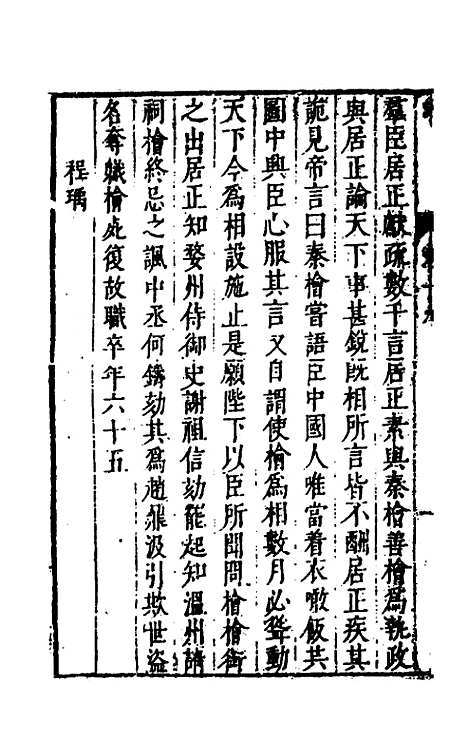 羣臣居正獻疏數千言居正素與秦檜善檜爲執政
與居正論天下事甚銳旣相所言皆不酬居正疾其
詭見帝言曰秦檜嘗語臣中國人唯當着衣噉飯共
圖中興臣心服其言又自謂使檜爲相數月必聳動
天下今爲相設施止是願陛下以臣所聞問檜檜銜
之出居正知婺州侍御史謝祖信劾罷起知溫州請
祠檜終忌之諷中丞何鑄劾其爲趙鼎汲引欺世盜
名奪職檜死復故職卒年六十五
程瑀